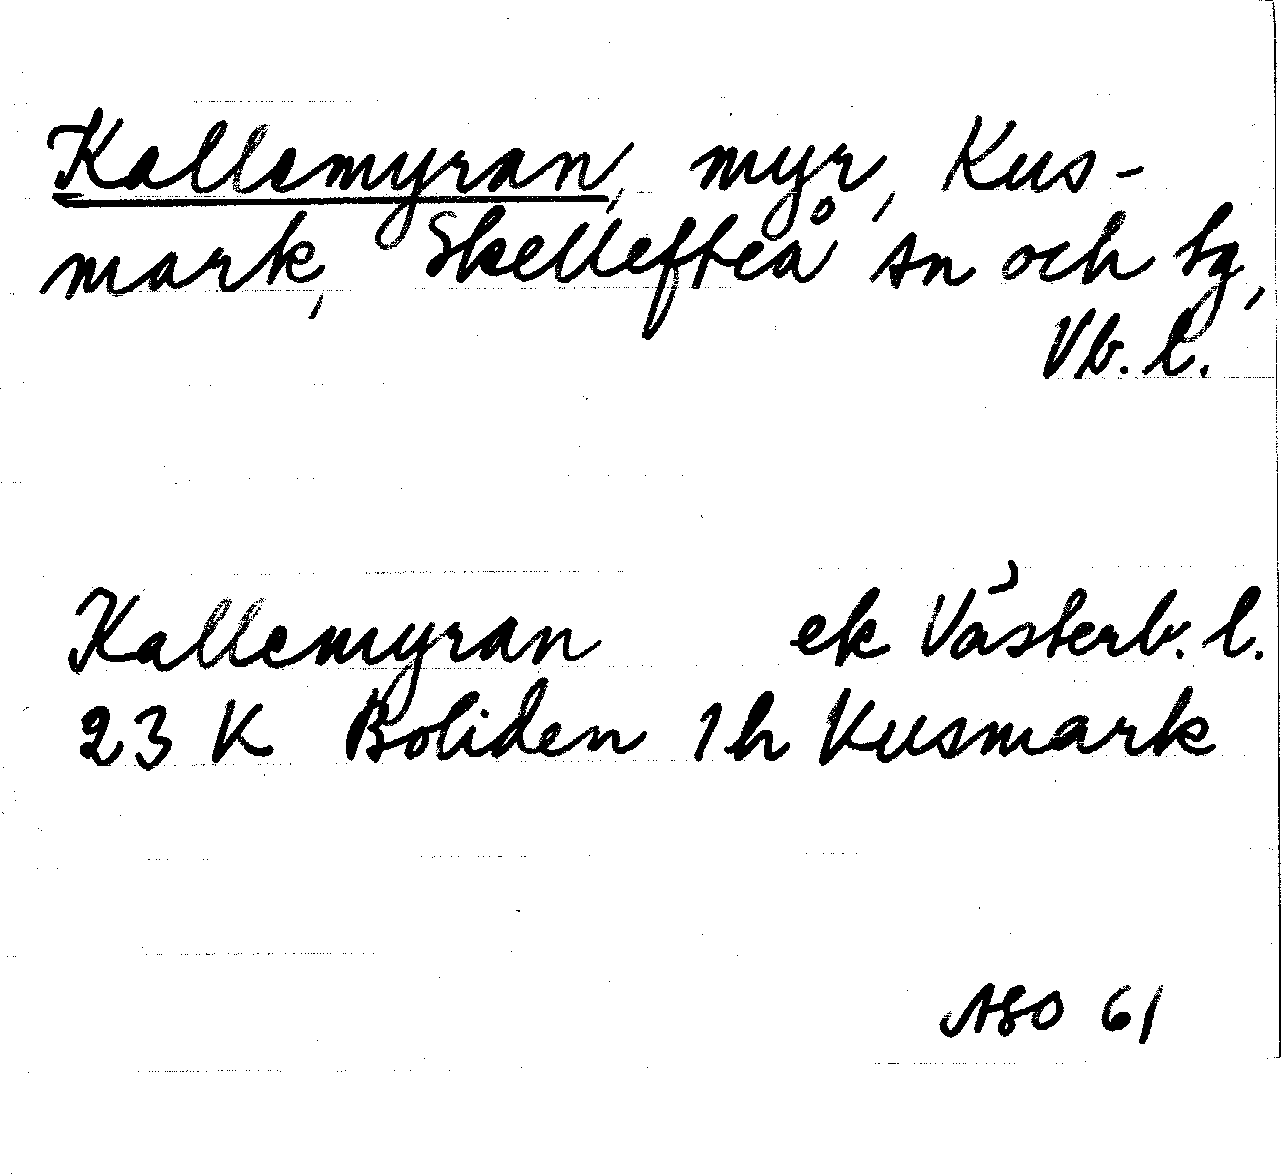 Kallemyran, myr, Kus-
mark, Skellefteå sn och tg,
Vb. l.
Kallemyran ek Västerb. l.
23 K Boliden 1 h Kusmark
ASO 61